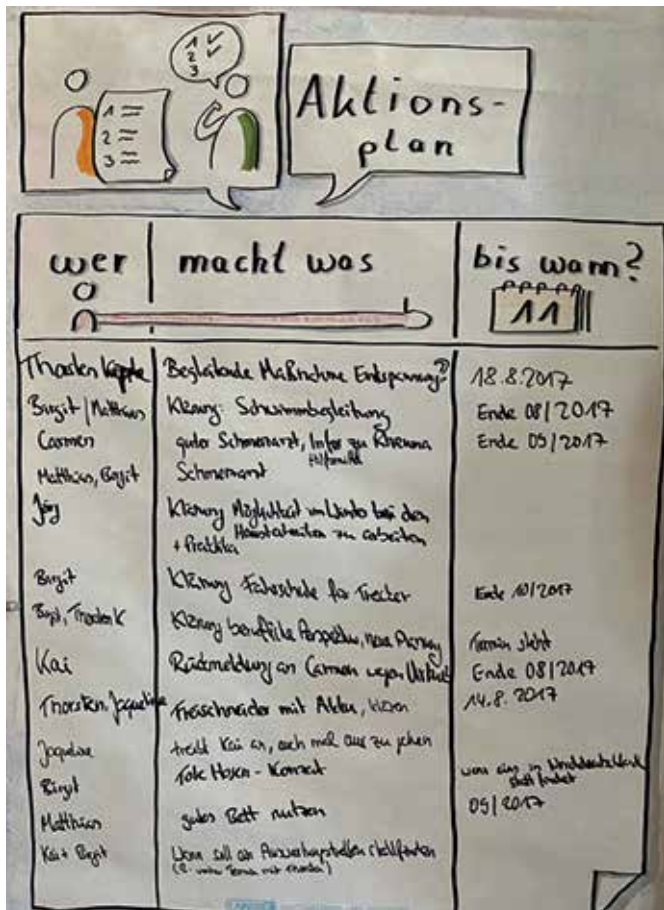 1 ✓
2 ✓
3
1
2
3
Aktions-
plan
wer macht was bis wann?
11
Thorsten Begleitende Maßnahme Entspannung? 18.8.2017
Birgit / Matthias Klärung: Schwimmbegleitung Ende 08/2017
Carmen guter Schmerzarzt, Infos zu Rheuma Ende 09/2017
Matthias, Birgit Schmerzarzt
Jörg Klärung Möglichkeit im Winter bei den
zu arbeiten
+ Praktika
Birgit Klärung Fahrschule für Trecker Ende 10/2017
Birgit, Thorsten K Klärung berufliche Perspektive, neue Planung Termin steht
Kai Rückmeldung an Carmen wegen Ende 08/2017
Thorsten, Jaqueline Freischneider mit Akku, 14.8.2017
Jaqueline treibt Kai an, auch mal aus zu gehen
Birgit Tote Hosen - Konzert wenn eins in Norddeutschland
statt findet
Matthias gutes Bett nutzen 09/2017
Kai + Birgit Wann soll ein stattfinden